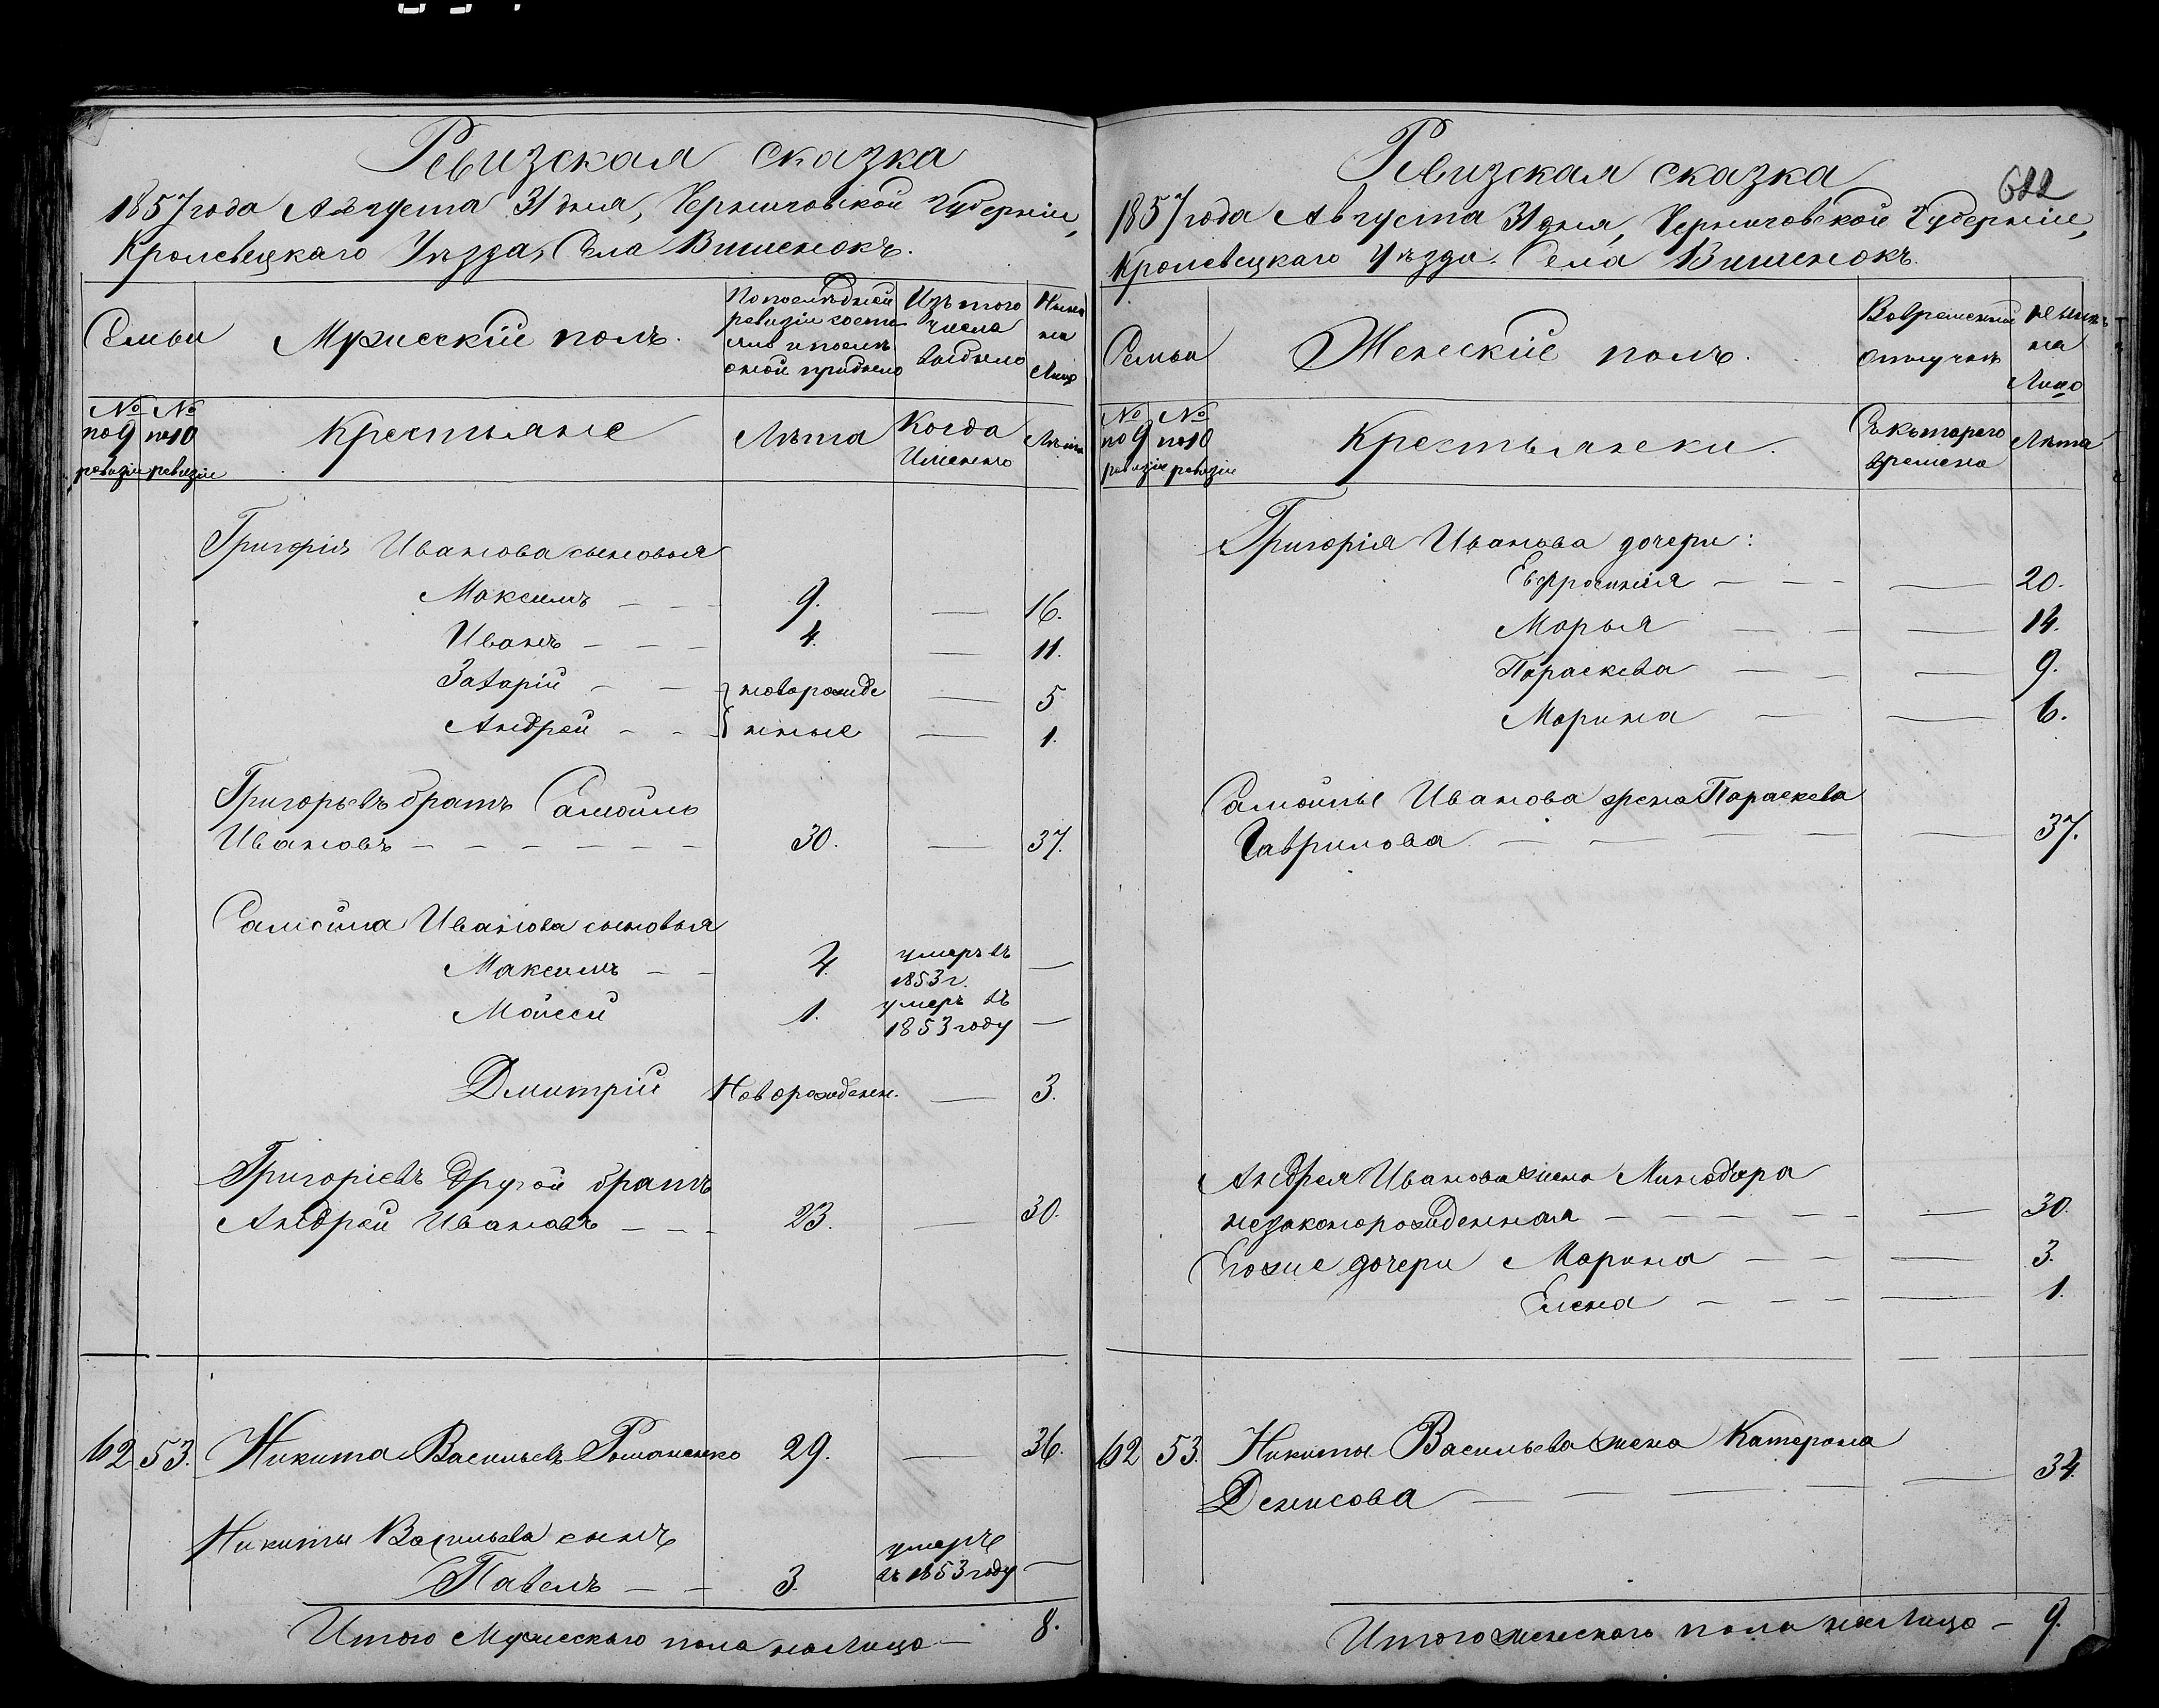 Ревизская сказка
1857 года Августа 31 дня, Черниговской Губерніи,
Кролевецкаго Уѣзда, Села Вишенокъ.
Семьи
Мужескій полъ.
По последней
ревизіи состо
яло и после
оной прибыло
Изъ того
числа
выбыло
Ныне
на
лицо
№ №
по 9 по 10
ревизіи ревизіи
Крестьяне
Лѣта
Когда
Именно
Лѣта
Григорія Иванова сыновья
Максимъ — — 9. — 16.
Иванъ — — — 4. — 11.
Захарій — — новорожде — 5
Андрей — — нные — 1.
Григорьевъ братъ Самойло
Ивановъ — — — — — — 30. — 37.
Самойла Иванова сыновья
Максимъ — — 4. умеръ въ —
1853 г.
Мойсей 1. умеръ въ
1853 году —
Дмитрій Новорожденн. — 3.
Григоріевъ другой братъ
Андрей Ивановъ — — — 23. — 30.
62 53. Никита Васильевъ Романенко 29. — 36.
Никиты Васильева сынъ
Павелъ — — 3. умеръ
въ 1853 году —
Итого Мужескаго пола на лицо — 8.
Ревизская сказка
622
1857 года Августа 31 дня, Черниговской Губерніи,
Кролевецкаго Уѣзда. Села Вишенокъ.
Семьи
Женскій полъ.
Во временной
отлучкѣ
Нынѣ
на
Лицо
№ №
по 9 по 10
ревизіи ревизіи
Крестьянски.
Съ котораго
времени
Лѣта
Григорія Иванова дочери:
Евфросинія — — — — 20.
Марья — — — 14.
Параскева — — — 9.
Марина — — — 6.
Самойлы Иванова жена Параскева
Гаврилова — — — — — 37.
Андрея Иванова жена Минодора
незаконорожденная — — — — — — 30.
Его же дочери Марина — — — 3.
Елена — — — — 1.
62 53. Никиты Васильева жена Катерина
Денисова — — — — — 34.
Итого женскаго пола на Лицо — 9.